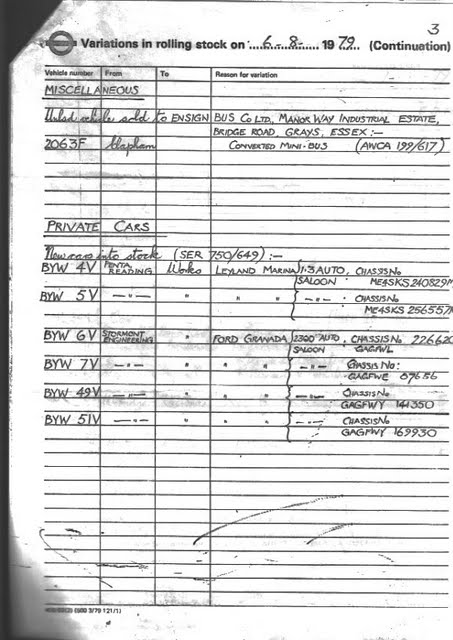 3
Variations in rolling stock on 6-8- 1979. (Continuation)
Vehicle number From To Reason for variation
MISCELLANEOUS
vehicle sold to ENSIGN BUS CO LTD, MANOR WAY INDUSTRIAL ESTATE,
BRIDGE ROAD, GRAYS, ESSEX:-
2063F Clapham CONVERTED MINI-BUS (AWCA 199/617)
PRIVATE CARS
New cars into stock (SER 750/649):-
BYW 4V PENTA READING Works LEYLAND MARINA 1·3 AUTO, CHASSIS No
SALOON ME4SKS 240829M
BYW 5V —"— " " " —"— : CHASSIS No
ME4SKS 256557M
BYW 6V STORMONT ENGINEERING " FORD GRANADA 2300 AUTO, CHASSIS No 226620
SALOON GAGFWL
BYW 7V —"— " " " —"— CHASSIS No:
GAGFWE 87656
BYW 49V —"— " " " —"— CHASSIS No
GAGFWY 141350
BYW 51V —"— " " " —"— CHASSIS No
GAGFWY 169930
(500 3/79 121/1)